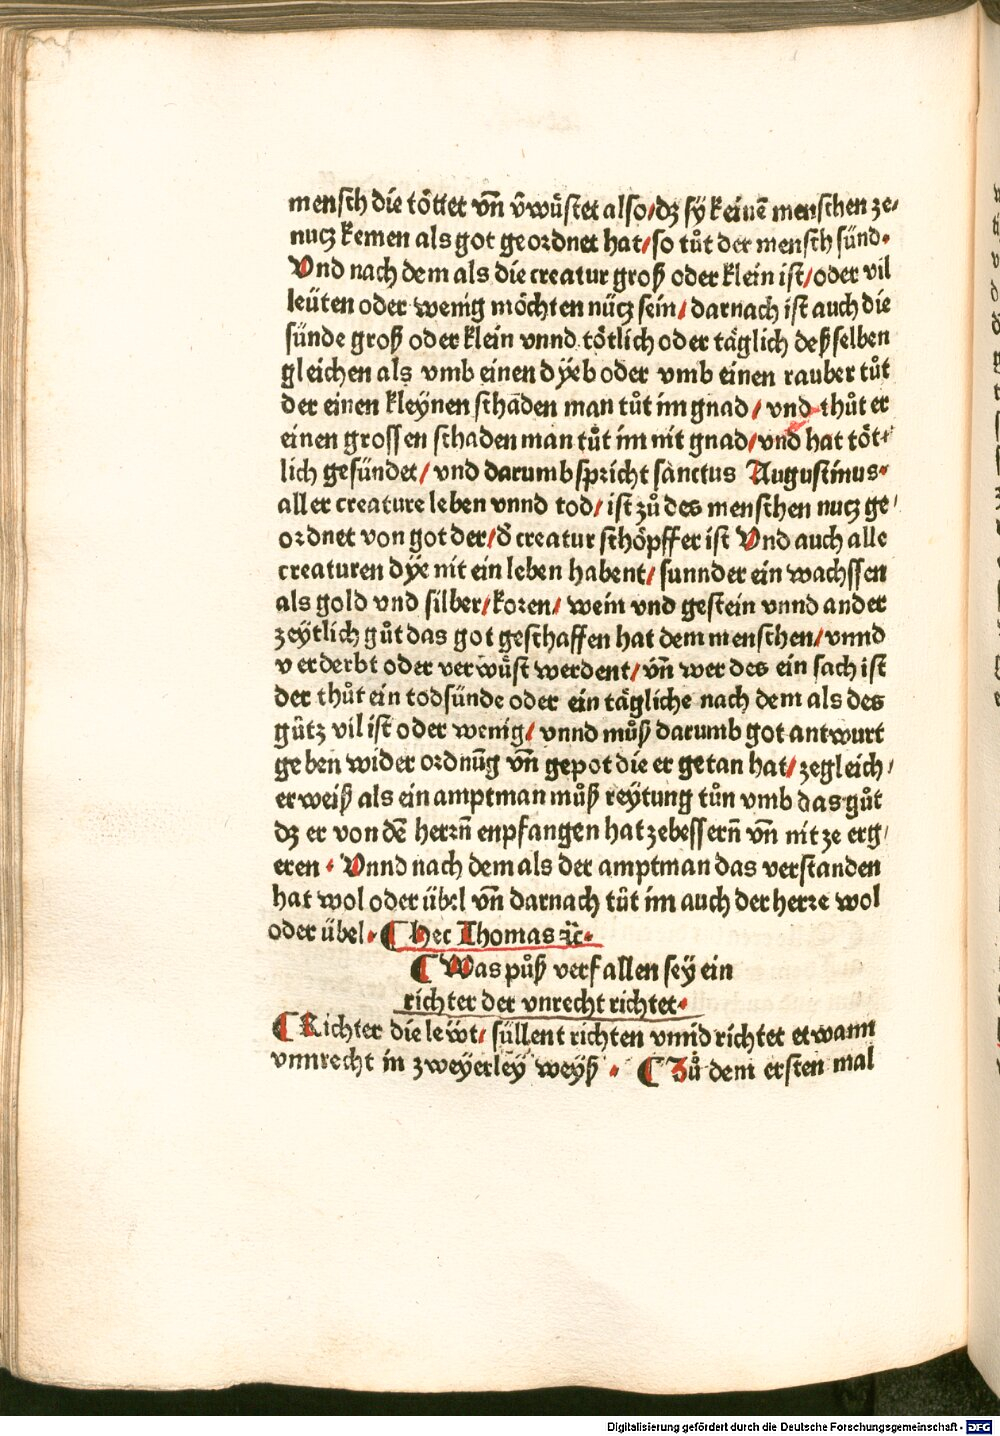 mensch die töttet vñ v̄wůſtet alſo/dʒ ſy keinē menſchen ze⸗
nucʒ kemen als got geordnet hat/ſo tůt der menſch ſünd.
Vnd nach dem als die creatur groß oder klein iſt/oder vil
leüten oder wenig möchten nücʒ ſein/darnach iſt auch die
ſünde groß oder klein vnnd tötlich oder täglich deßſelben
gleichen als vmb einen dÿeb oder vmb einen rauber tůt
der einen kleÿnen ſchaden man tůt im gnad/vnd thůt er
einen groſſen ſchaden man tůt im nit gnad/vnd hat töt⸗
lich geſündet/vnd darumb ſpricht ſanctus Auguſtinus.
aller creature leben vnnd tod/iſt zů des menſchen nucʒ ge⸗
ordnet von got der/d̄ creatur ſchöpffer iſt Vnd auch alle
creaturen dÿe nit ein leben habent/ſunnder ein wachſſen
als gold vnd ſilber/koren/wein vnd geſtein vnnd ander
zeÿtlich gůt das got geſchaffen hat dem menſchen/vnnd
verderbt oder verwůſt werdent/vñ wer des ein ſach iſt
der thůt ein todſünde oder ein tägliche nach dem als des
gůtz vil iſt oder wenig/vnnd můß darumb got antwurt
geben wider ordnūg vñ gepot die er getan hat/zegleich⸗
erweiß als ein amptman můß reÿtung tůn vmb das gůt
dʒ er von dē herrn̄ enpfangen hat zebeſſern̄ vñ nit ze erg⸗
eren. Vnnd nach dem als der amptman das verſtanden
hat wol oder übel vñ darnach tůt im auch der herre wol
oder übel. ¶ Hec Thomas ꝛc̄.
¶ Was půß verfallen ſeÿ ein
richter der vnrecht richtet.
¶ Richter die leẅt/ſüllent richten vnnd richtet etwann
vnnrecht in zweÿerleÿ weÿß. ¶ Zů dem erſten mal
Digitalisierung gefördert durch die Deutsche Forschungsgemeinschaft - DFG